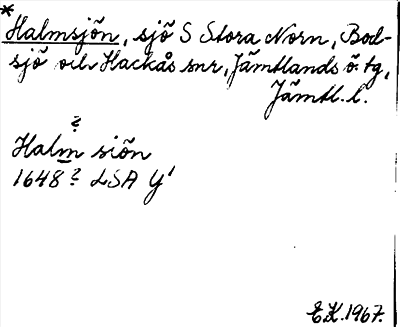 *
Halmsjön, sjö S Stora Norn, Bod-
sjö och Hackås snr, Jämtlands ö. tg,
Jämtl. l.
?
Halm siön
1648 ? LSA Y¹
E.K. 1967.